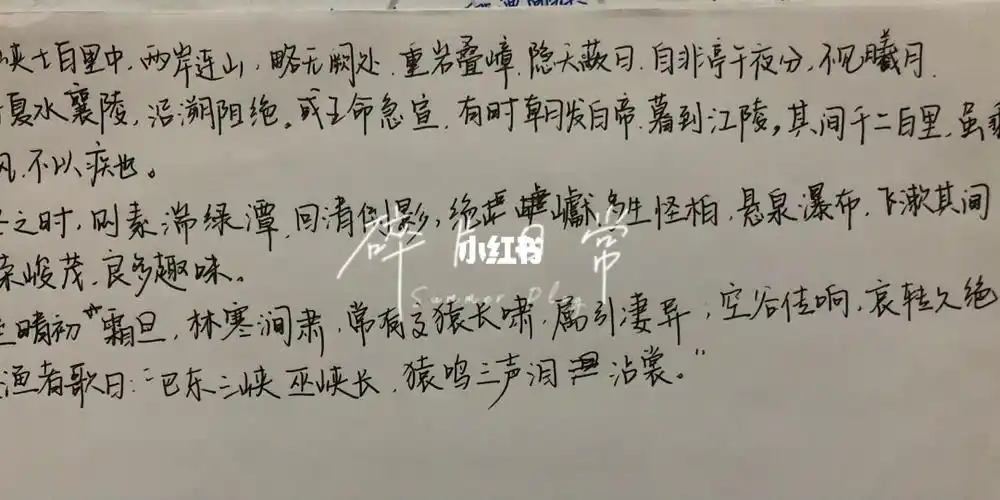 峡七百里中，两岸连山，略无阙处.重岩叠嶂.隐天蔽日.自非亭午夜分，不见曦月.
夏水襄陵，沿溯阻绝。或王命急宣，有时朝发白帝.暮到江陵，其间千二百里，虽乘
风.不以疾也。
之时，则素湍绿潭，回清倒影，绝 巘多生怪柏，悬泉瀑布，飞漱其间
荣峻茂，良多趣味。
晴初霜旦，林寒涧肃，常有高猿长啸，属引凄异，空谷传响，哀转久绝
渔者歌曰："巴东三峡巫峡长，猿鸣三声泪沾裳。"
碎片日常
Summer Plog
小红书